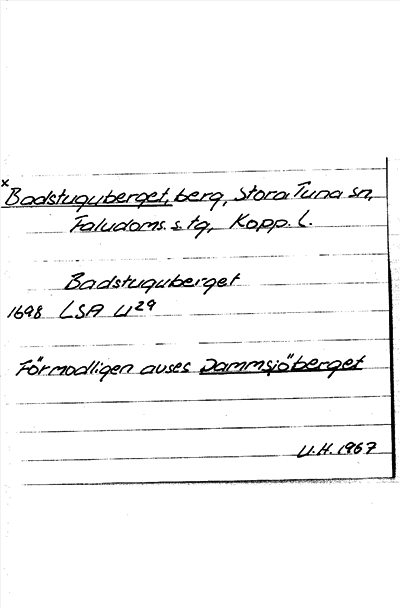 x Badstuguberget, berg, Stora Tuna sn,
Faludoms. s. tg, Kopp. L.
Badstuguberget
1698 LSA U29
Förmodligen avses Dammsjöberget
U.H. 1967